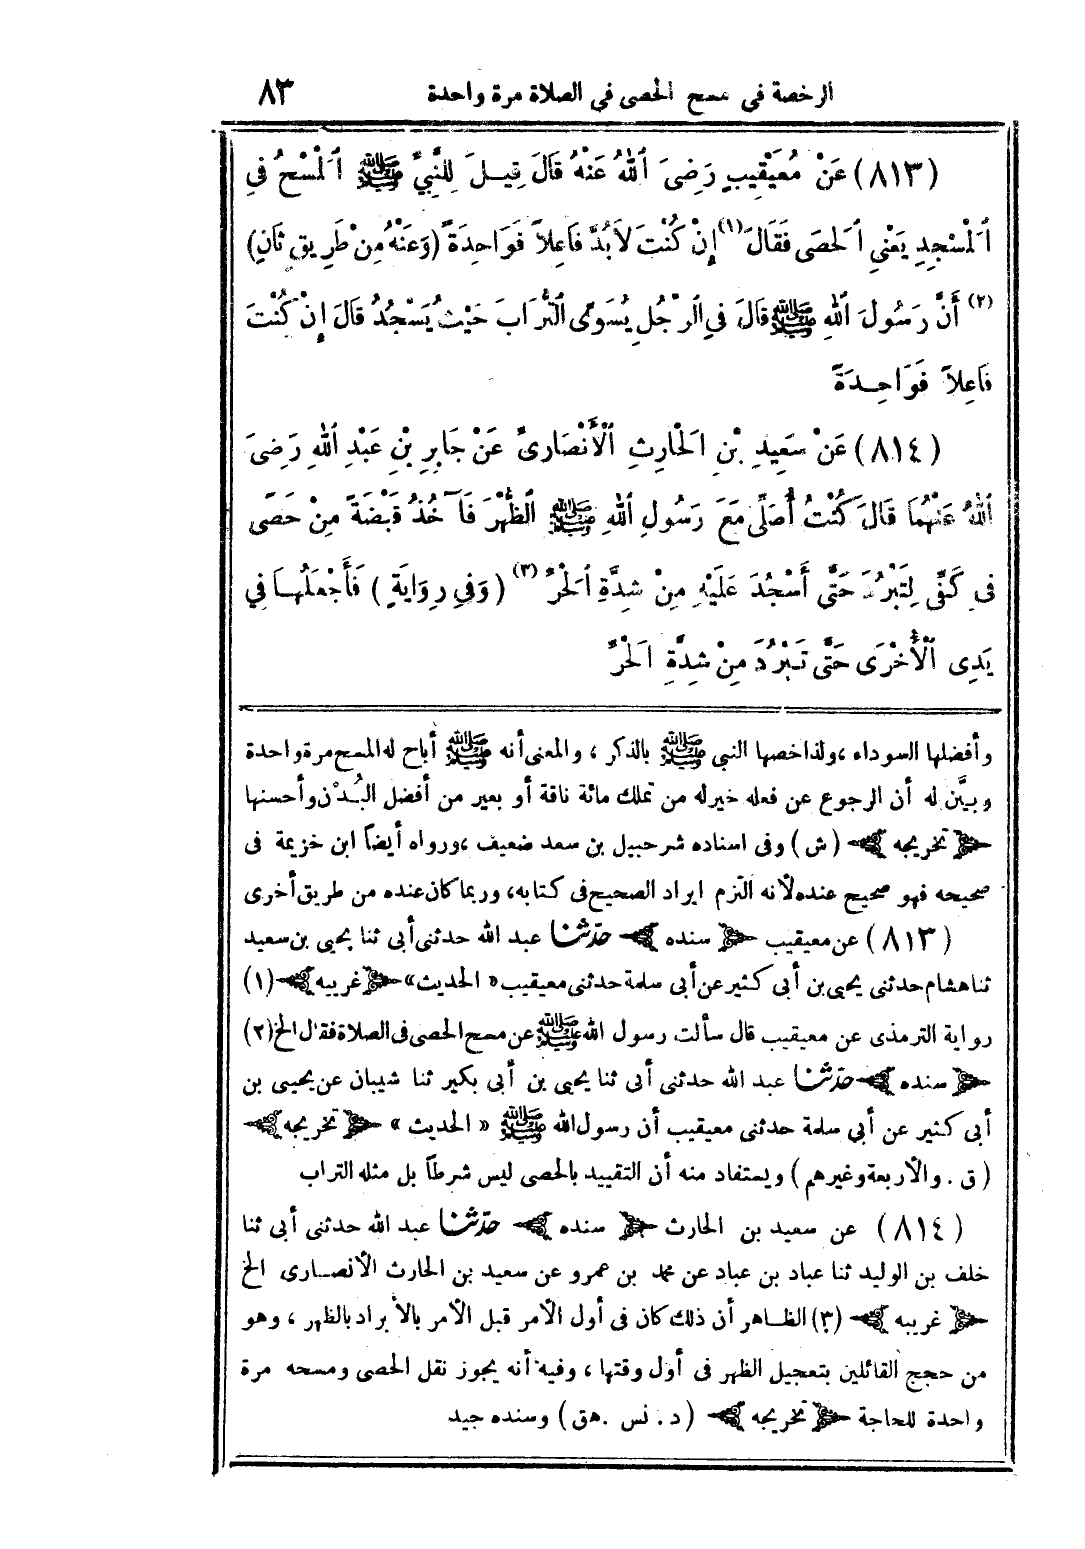 الرخصة في مسح الحصى في الصلاة مرة واحدة ٨٣
(٨١٣) عَنْ مُعَيْقِيبٍ رَضِىَ ٱللهُ عَنْهُ قَالَ قِيلَ لِلنَّبِيِّ ﷺ ٱلْمَسْحُ فِي
ٱلْمَسْجِدِ يَعْنِي ٱلْحَصَى فَقَالَ (١) إِنْ كُنْتَ لاَبُدَّ فَاعِلاً فَوَاحِدَةً (وَعَنْهُ مِنْ طَرِيقٍ ثَانٍ)
(٢) أَنَّ رَسُولَ ٱللهِ ﷺ قَالَ فِي ٱلرَّجُلِ يُسَوِّي ٱلتُّرَابَ حَيْثُ يَسْجُدُ قَالَ إِنْ كُنْتَ
فَاعِلاً فَوَاحِدَةً
(٨١٤) عَنْ سَعِيدِ بْنِ ٱلْحَارِثِ ٱلْأَنْصَارِيِّ عَنْ جَابِرِ بْنِ عَبْدِ ٱللهِ رَضِىَ
ٱللهُ عَنْهُمَا قَالَ كُنْتُ أُصَلِّي مَعَ رَسُولِ ٱللهِ ﷺ ٱلظُّهْرَ فَآخُذُ قَبْضَةً مِنْ حَصًى
فِي كَفِّي لِتَبْرُدَ حَتَّى أَسْجُدَ عَلَيْهِ مِنْ شِدَّةِ ٱلْحَرِّ (٣) (وَفِي رِوَايَةٍ) فَأَجْعَلُهَا فِي
يَدِي ٱلْأُخْرَى حَتَّى تَبْرُدَ مِنْ شِدَّةِ ٱلْحَرِّ
وأفضلها السوداء ، ولذا خصها النبي ﷺ بالذكر ، والمعنى أنه ﷺ أباح له المسح مرة واحدة
وبيَّن له أن الرجوع عن فعله خير له من تملك مائة ناقة أو بعير من أفضل البُدْن وأحسنها
﴿ تخريجه ﴾ (ش) وفى اسناده شرحبيل بن سعد ضعيف ، ورواه أيضاً ابن خزيمة فى
صحيحه فهو صحيح عنده لأنه التزم ايراد الصحيح فى كتابه، وربما كان عنده من طريق أخرى
(٨١٣) عن معيقيب ﴿ سنده ﴾ حدّثنا عبد الله حدثنى أبي ثنا يحيى بن سعيد
ثنا هشام حدثنى يحيى بن أبى كثير عن أبى سلمة حدثنى معيقيب « الحديث » ﴿ غريبه ﴾ (١)
رواية الترمذى عن معيقيب قال سألت رسول الله ﷺ عن مسح الحصى فى الصلاة فقال الخ (٢)
﴿ سنده ﴾ حدّثنا عبد الله حدثنى أبى ثنا يحيى بن أبى بكير ثنا شيبان عن يحيى بن
أبى كثير عن أبي سلمة حدثنى معيقيب أن رسول الله ﷺ « الحديث » ﴿ تخريجه ﴾
(ق . والأربعة وغيرهم) ويستفاد منه أن التقييد بالحصى ليس شرطاً بل مثله التراب
(٨١٤) عن سعيد بن الحارث ﴿ سنده ﴾ حدّثنا عبد الله حدثنى أبى ثنا
خلف بن الوليد ثنا عباد بن عباد عن محمد بن عمرو عن سعيد بن الحارث الأنصارى الخ
﴿ غريبه ﴾ (٣) الظاهر أن ذلك كان فى أول الأمر قبل الأمر بالأبراد بالظهر ، وهو
من حجج القائلين بتعجيل الظهر فى أول وقتها ، وفيه أنه يجوز نقل الحصى ومسحه مرة
واحدة للحاجة ﴿ تخريجه ﴾ (د . نس . هق) وسنده جيد